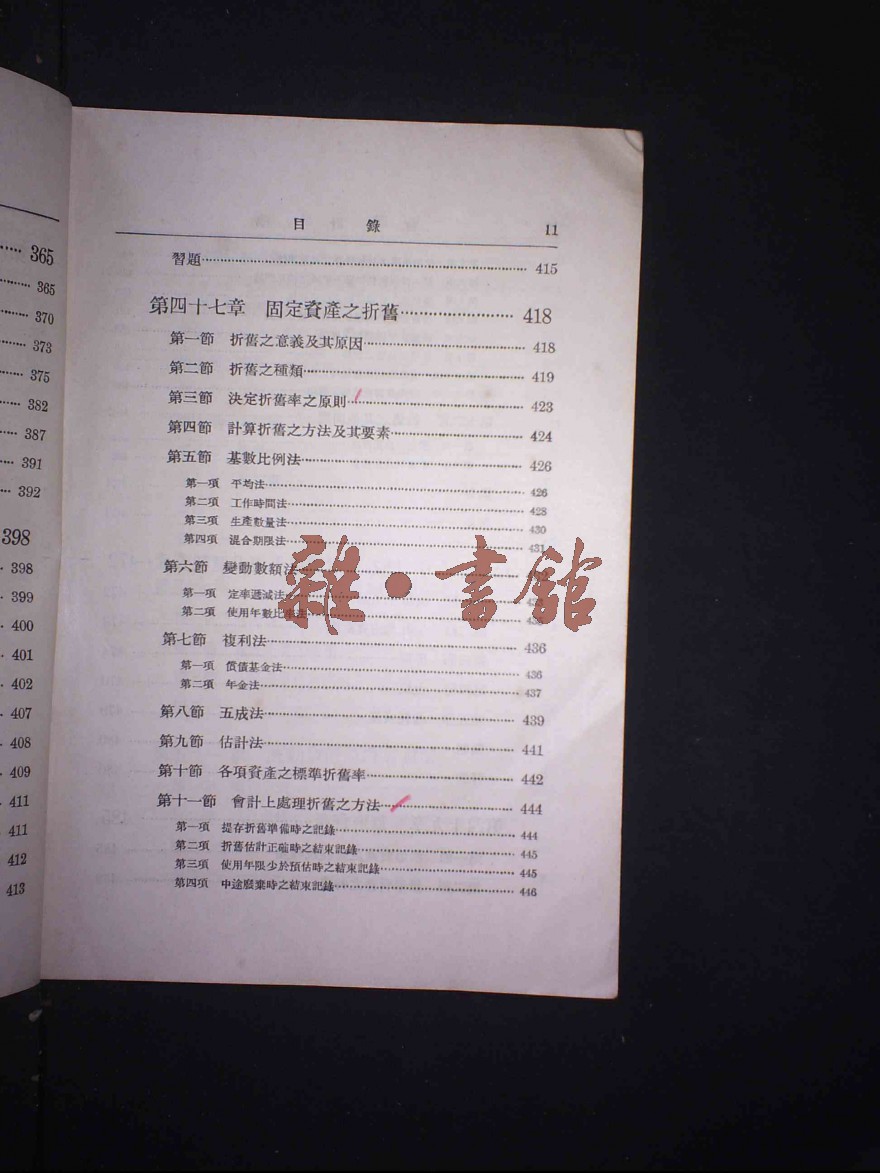 365
365
370
373
375
382
387
391
392
398
398
399
400
401
402
407
408
409
411
411
412
413
目 錄 11
習題 415
第四十七章 固定資產之折舊 418
第一節 折舊之意義及其原因 418
第二節 折舊之種類 419
第三節 決定折舊率之原則 423
第四節 計算折舊之方法及其要素 424
第五節 基數比例法 426
第一項 平均法 426
第二項 工作時間法 428
第三項 生產數量法 430
第四項 混合期限法 431
第六節 變動數額法
第一項 定率遞減法
第二項 使用年數比率法
第七節 複利法 436
第一項 償債基金法 436
第二項 年金法 437
第八節 五成法 439
第九節 估計法 441
第十節 各項資產之標準折舊率 442
第十一節 會計上處理折舊之方法 444
第一項 提存折舊準備時之記錄 444
第二項 折舊估計正確時之結束記錄 445
第三項 使用年限少於預估時之結束記錄 445
第四項 中途廢棄時之結束記錄 446
雜·書館